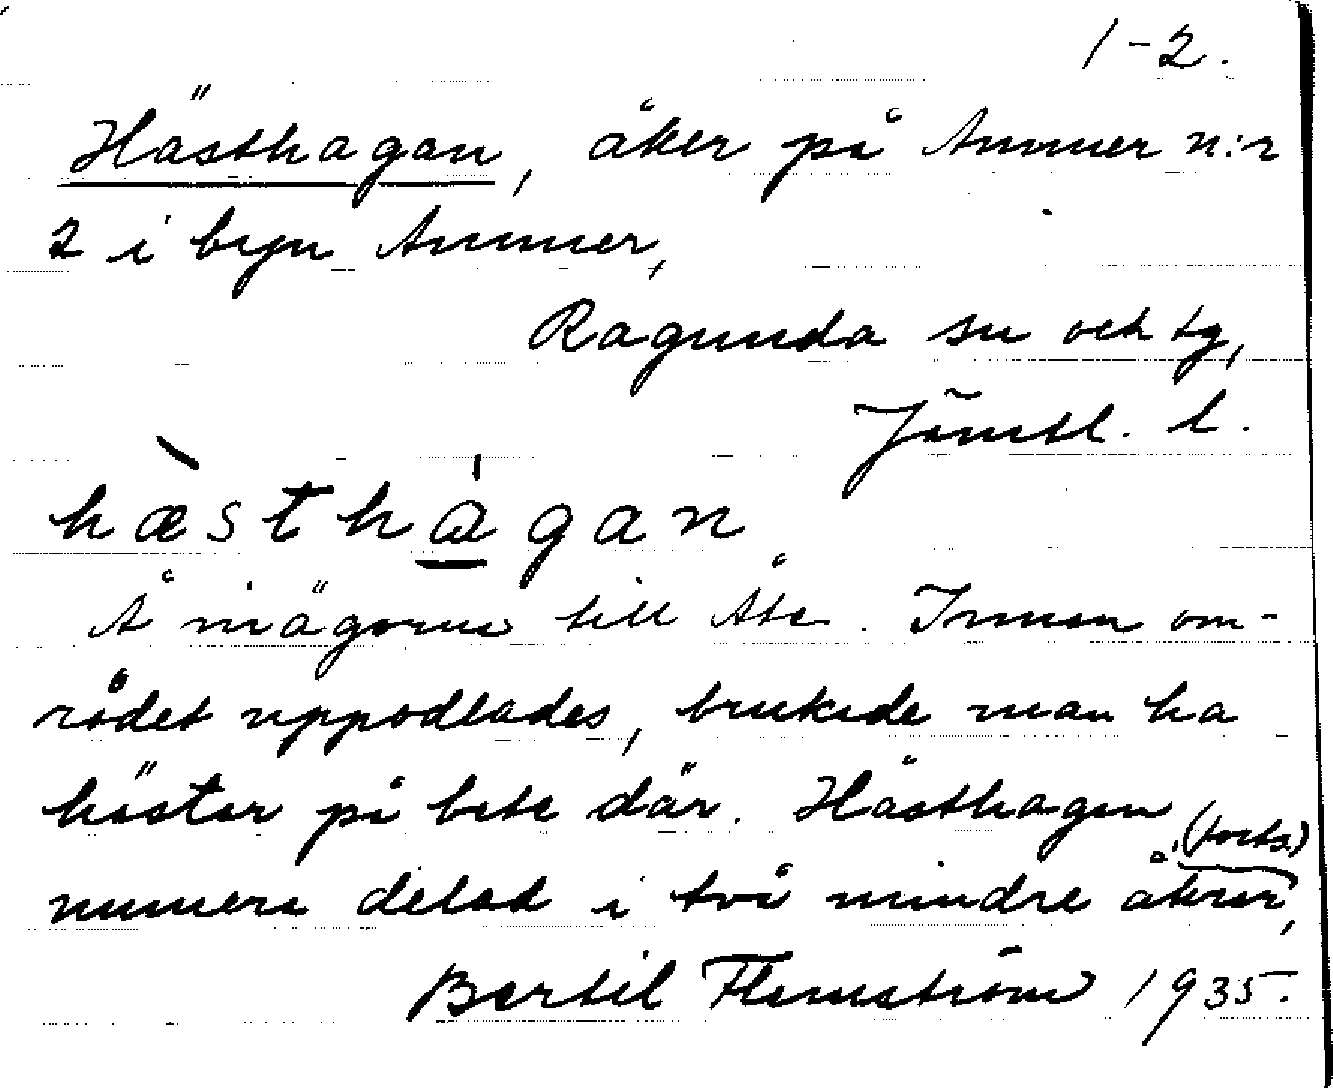 1-2.
Hästhagan, åker på Ammer n:r
2 i byn Ammer,
Ragunda sn och tg,
Jämtl. l.
hæ̀sthágan
Å inägorna till Åbc. Innan om-
rådet uppodlades, brukade man ha
hästar på bete där. Hästhagan
(forts.)
numera delad i två mindre åkrar,
Bertil Flemström 1935.